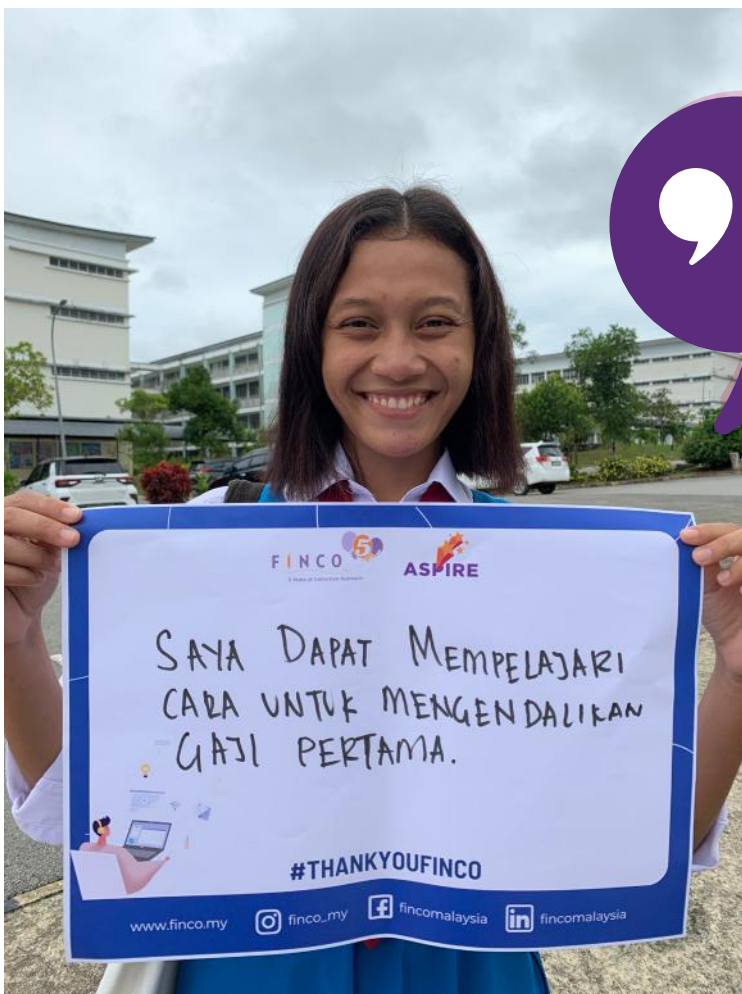 FINCO 5
5 Years of Collective Outreach
ASPIRE
SAYA DAPAT MEMPELAJARI
CARA UNTUK MENGENDALIKAN
GAJI PERTAMA.
#THANKYOUFINCO
www.finco.my finco_my fincomalaysia fincomalaysia